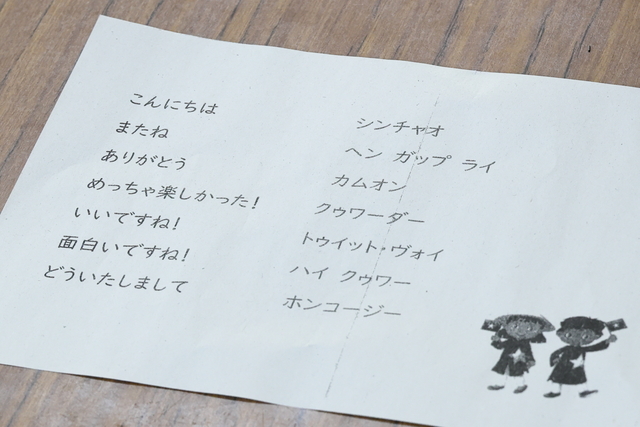 こんにちは シンチャオ
またね ヘン ガップ ライ
ありがとう カムオン
めっちゃ楽しかった! クゥワーダー
いいですね! トゥイット・ヴォイ
面白いですね! ハイ クゥワー
どういたしまして ホンコージー